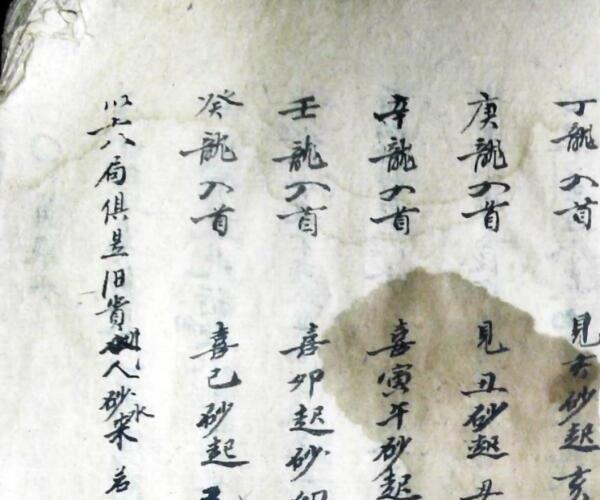 丁龍入首 見亥砂起亥
庚龍入首 見丑砂起丑
辛龍入首 喜寅午砂起
壬龍入首 喜卯起砂
癸龍入首 喜巳砂起
以上八局俱是旧貴人砂水来 若